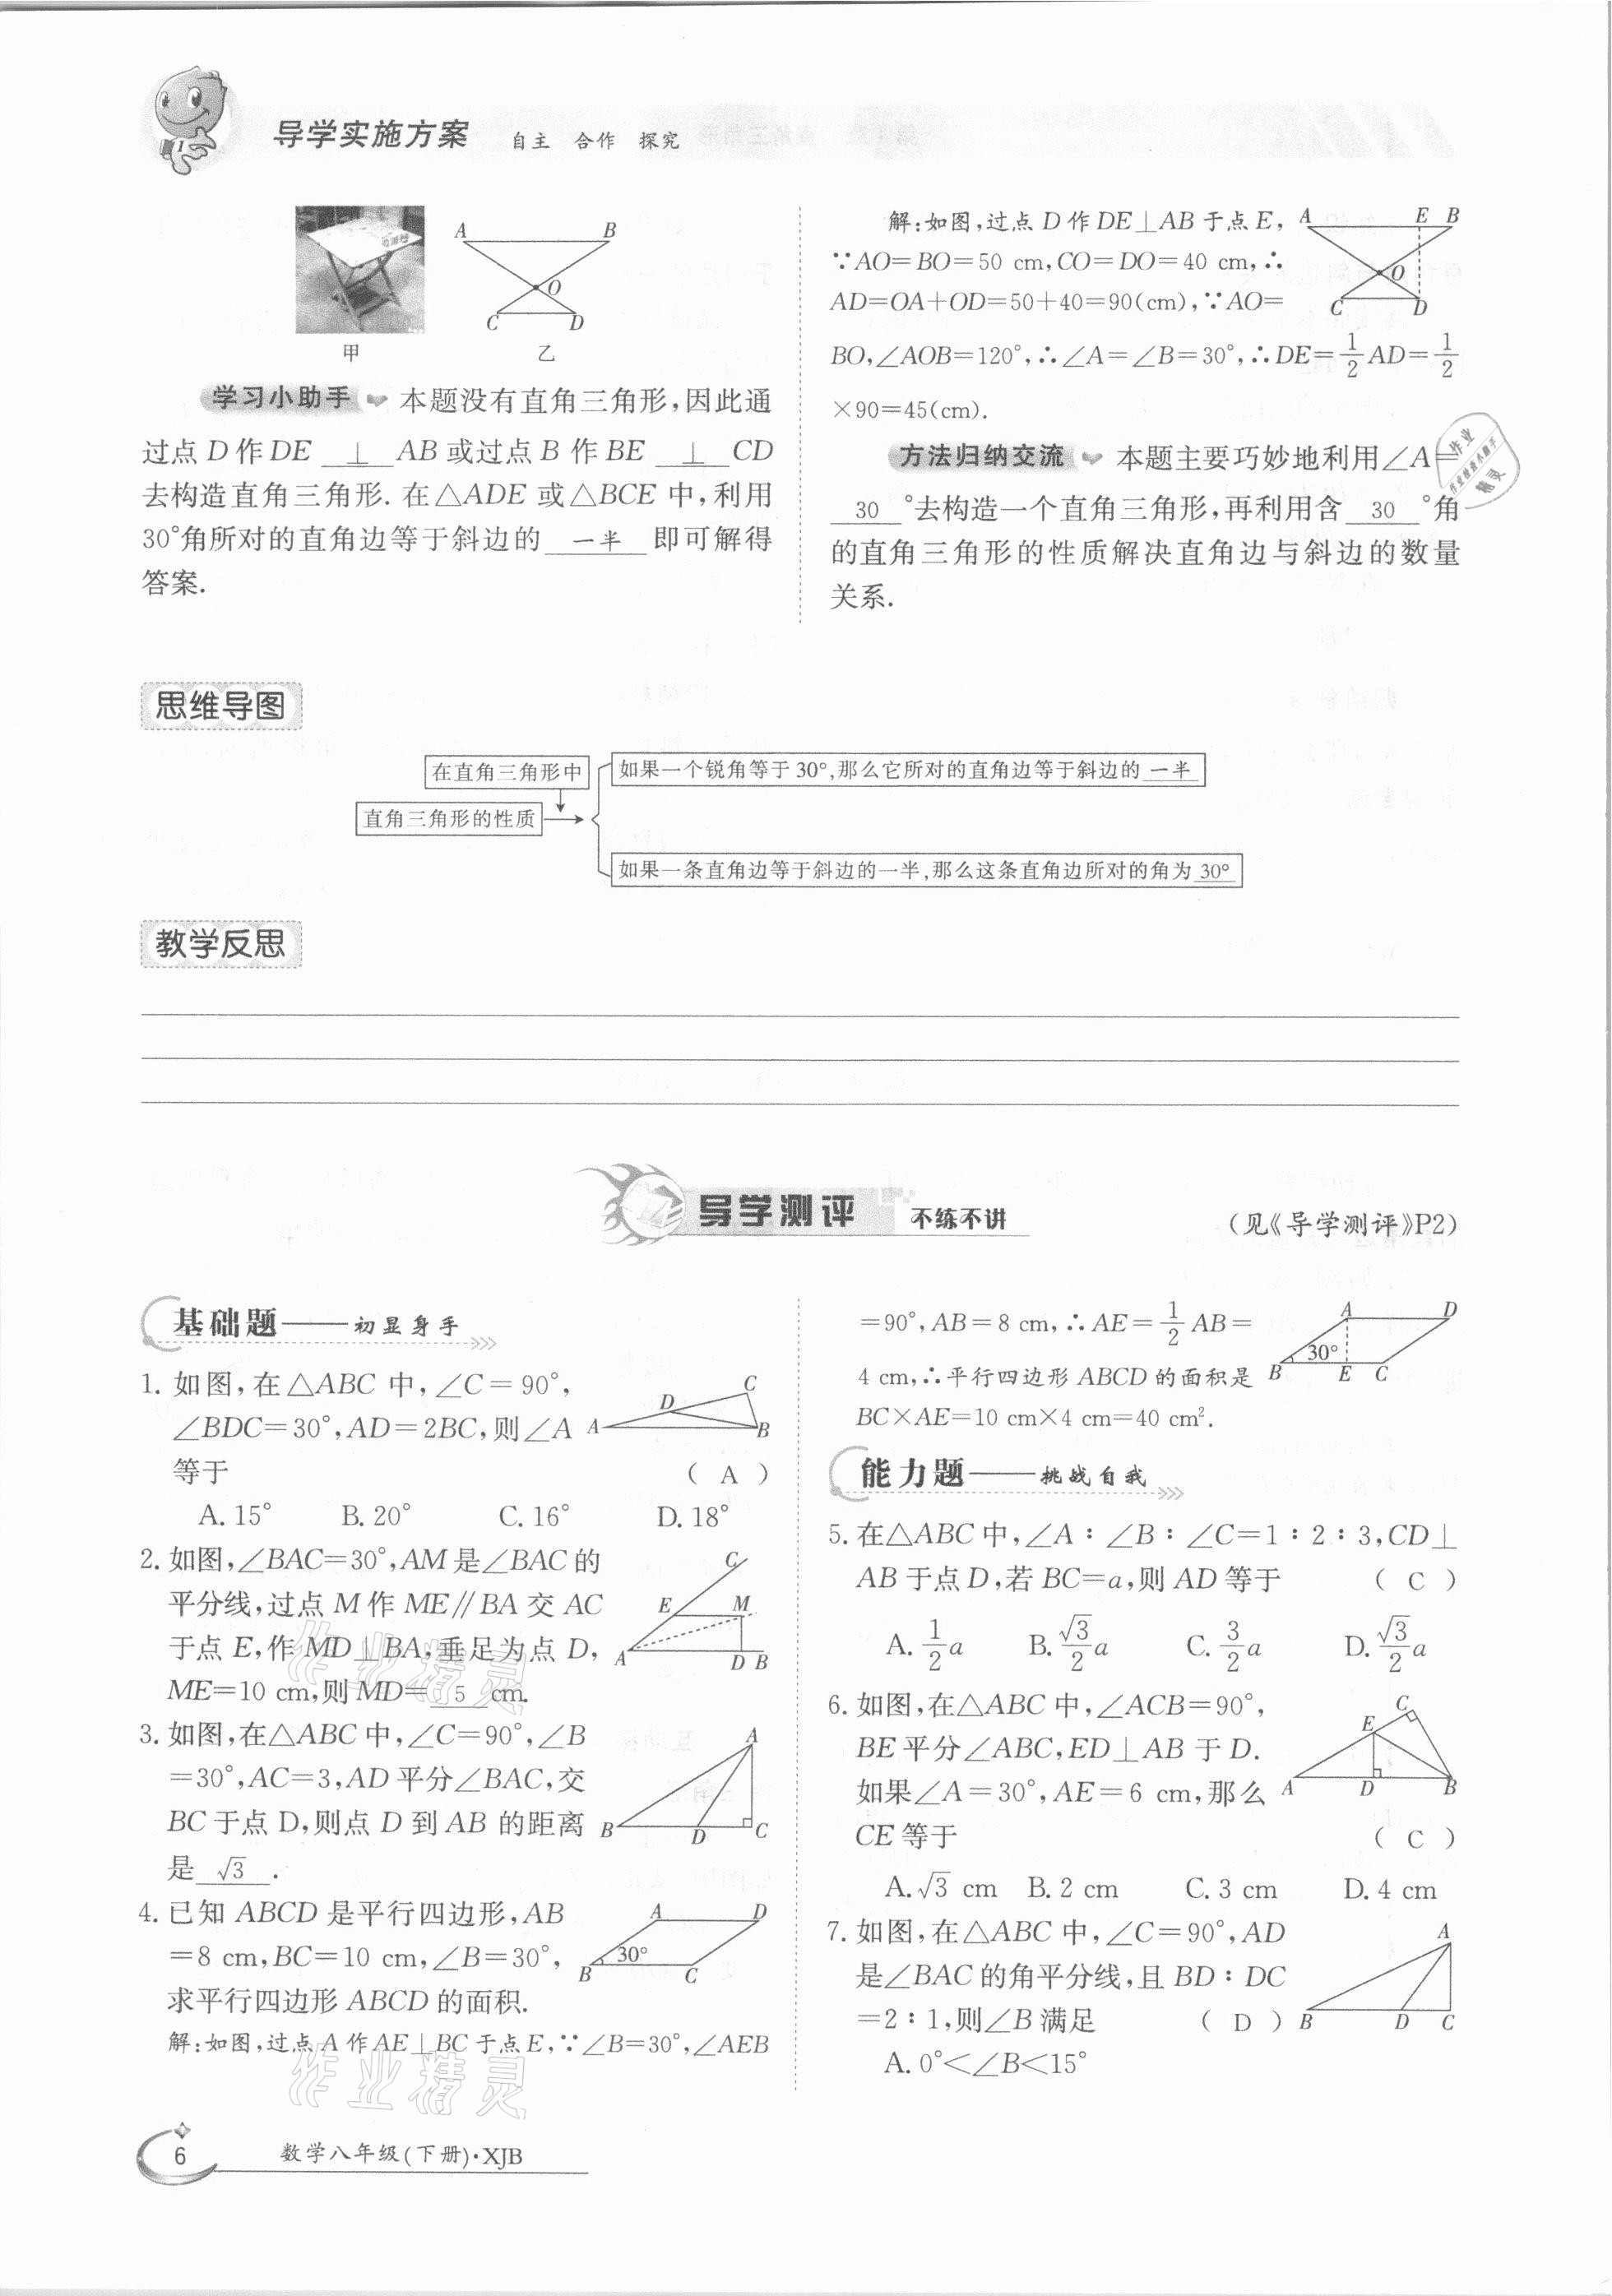 导学实施方案 自主 合作 探究
A B
O
C D
甲 乙
学习小助手 本题没有直角三角形,因此通
过点 D 作 DE ⊥ AB 或过点 B 作 BE ⊥ CD
去构造直角三角形. 在△ADE 或△BCE 中,利用
30°角所对的直角边等于斜边的 一半 即可解得
答案.
解:如图,过点 D 作 DE⊥AB 于点 E,
∵AO=BO=50 cm,CO=DO=40 cm,∴
AD=OA+OD=50+40=90(cm),∵AO=
BO,∠AOB=120°,∴∠A=∠B=30°,∴DE=1/2 AD=1/2
×90=45(cm).
A E B
O
C D
方法归纳交流 本题主要巧妙地利用∠A=
30 °去构造一个直角三角形,再利用含 30 °角
的直角三角形的性质解决直角边与斜边的数量
关系.
作业
精灵
思维导图
在直角三角形中
直角三角形的性质
如果一个锐角等于 30°,那么它所对的直角边等于斜边的 一半
如果一条直角边等于斜边的一半,那么这条直角边所对的角为 30°
教学反思
导学测评 不练不讲 (见《导学测评》P2)
基础题——初显身手
1. 如图,在△ABC 中,∠C=90°,
∠BDC=30°,AD=2BC,则∠A
等于 ( A )
A. 15° B. 20° C. 16° D. 18°
C
D
A B
2. 如图,∠BAC=30°,AM 是∠BAC 的
平分线,过点 M 作 ME∥BA 交 AC
于点 E,作 MD⊥BA,垂足为点 D,
ME=10 cm,则 MD= 5 cm.
C
E M
A D B
3. 如图,在△ABC 中,∠C=90°,∠B
=30°,AC=3,AD 平分∠BAC,交
BC 于点 D,则点 D 到 AB 的距离
是 √3 .
A
B D C
4. 已知 ABCD 是平行四边形,AB
=8 cm,BC=10 cm,∠B=30°,
求平行四边形 ABCD 的面积.
A D
30°
B C
解:如图,过点 A 作 AE⊥BC 于点 E,∵∠B=30°,∠AEB
=90°,AB=8 cm,∴AE=1/2 AB=
4 cm,∴平行四边形 ABCD 的面积是
BC×AE=10 cm×4 cm=40 cm².
A D
30°
B E C
能力题——挑战自我
5. 在△ABC 中,∠A∶∠B∶∠C=1∶2∶3,CD⊥
AB 于点 D,若 BC=a,则 AD 等于 ( C )
A. 1/2 a B. √3/2 a C. 3/2 a D. √3/2 a
6. 如图,在△ABC 中,∠ACB=90°,
BE 平分∠ABC,ED⊥AB 于 D.
如果∠A=30°,AE=6 cm,那么
CE 等于 ( C )
A. √3 cm B. 2 cm C. 3 cm D. 4 cm
C
E
A D B
7. 如图,在△ABC 中,∠C=90°,AD
是∠BAC 的角平分线,且 BD∶DC
=2∶1,则∠B 满足 ( D )
A. 0°<∠B<15°
A
B D C
作业精灵
作业精灵
6 数学八年级(下册)·XJB